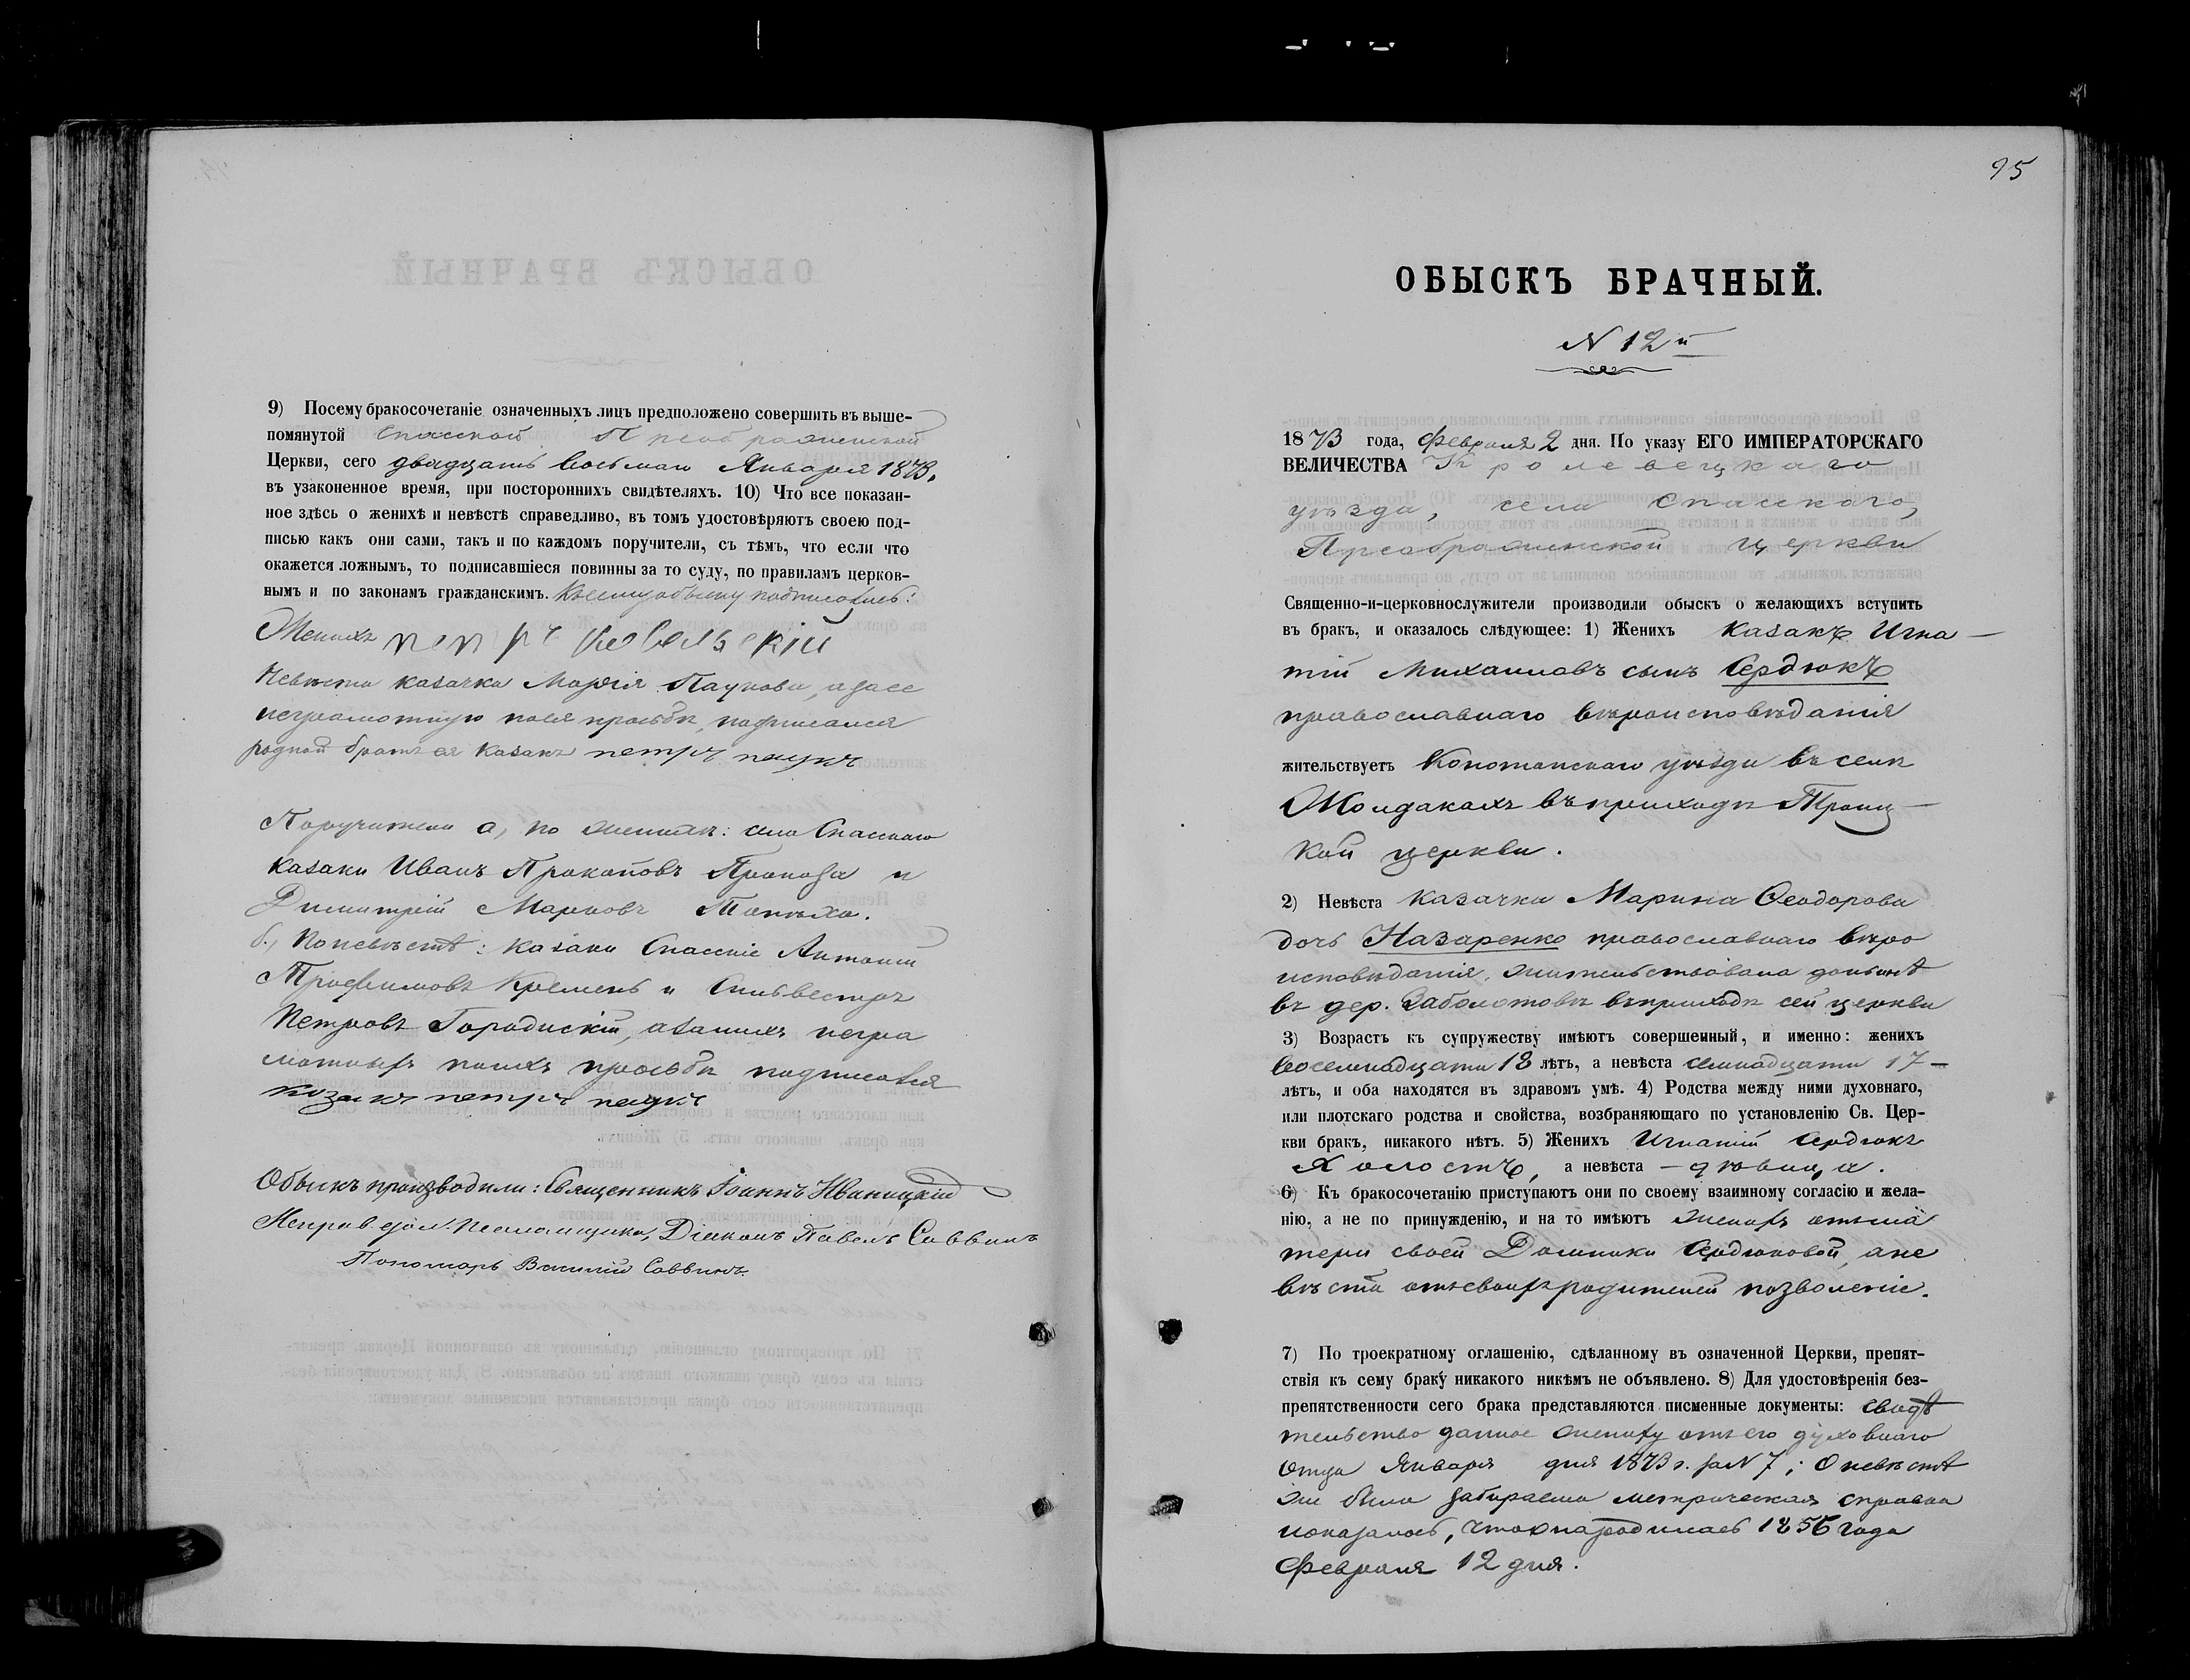 9) Посему бракосочетаніе означенныхъ лицъ предположено совершить въ выше-
помянутой Спасской Преображенской
Церкви, сего двадцать восьмаго Января 1873.
въ узаконенное время, при постороннихъ свидѣтеляхъ. 10) Что все показан-
ное здѣсь о женихѣ и невѣстѣ справедливо, въ томъ удостовѣряютъ своею под-
писью какъ они сами, такъ и по каждомъ поручители, съ тѣмъ, что если что
окажется ложнымъ, то подписавшіеся повинны за то суду, по правиламъ церков-
нымъ и по законамъ гражданскимъ. Къ сему обыску подписались:
Женихъ петръ
Невѣста казачка Марія Паукова, а за ее
неграмотную по ея просьбѣ, подписался
родной братъ ея казакъ петръ паукъ
Поручители а, по женихѣ: села Спасскаго
казаки Иванъ Прокоповъ и
Димитрій Марковъ
б., По невѣстѣ: казаки Спасскіе Антоній
Трофимовъ Кремень и Сильвестръ
Петровъ Городискій, а за нихъ негра
мотныхъ по ихъ просьбѣ подписался
козакъ петръ паукъ
Обыскъ производили: Священникъ Іоаннъ Иваницкій
Исправ. дол. Псаломщика, Діаконъ Павелъ Саввинъ
Пономарь Василій Саввинъ.
95
ОБЫСКЪ БРАЧНЫЙ.
N 12й
1873 года, Февраля 2 дня. По указу ЕГО ИМПЕРАТОРСКАГО
ВЕЛИЧЕСТВА Кролевецкаго
уѣзда, села Спасскаго,
Преображенской церкви
Священно-и-церковнослужители производили обыскъ о желающихъ вступить
въ бракъ, и оказалось слѣдующее: 1) Женихъ казакъ Игна-
тій Михаиловъ сынъ Сердюкъ
православнаго вѣроисповѣданія
жительствуетъ Конотопскаго уѣзда въ селѣ
Жолдакахъ въ приходѣ Троиц-
кой церкви.
2) Невѣста казачка Марина Ѳеодорова
дочь Назаренко православнаго вѣро
исповѣданія, жительствовала донынѣ
въ дер. Заболотовѣ въ приходѣ сей церкви
3) Возрастъ къ супружеству имѣютъ совершенный, и именно: женихъ
восемнадцати 18 лѣтъ, а невѣста семнадцати 17 –
лѣтъ, и оба находятся въ здравомъ умѣ. 4) Родства между ними духовнаго,
или плотскаго родства и свойства, возбраняющаго по установленію Св. Цер-
кви бракъ, никакого нѣтъ. 5) Женихъ Игнатій Сердюкъ
Холостъ, а невѣста – дѣвица.
6) Къ бракосочетанію приступаютъ они по своему взаимному согласію и жела-
нію, а не по принужденію, и на то имѣютъ Женихъ отъ ма
тери своей Домники Сердюковой, а не
вѣста отъ своихъ родителей позволеніе.
7) По троекратному оглашенію, сдѣланному въ означенной Церкви, препят-
ствія къ сему браку никакого никѣмъ не объявлено. 8) Для удостовѣренія без-
препятственности сего брака представляются писменные документы: свидѣ
тельство данное жениху отъ его духовнаго
отца Января дня 1873 г. за N 7; О невѣстѣ
же была забираема метрическая справка
показалось, что она родилась 1856 года
Февраля 12 дня.